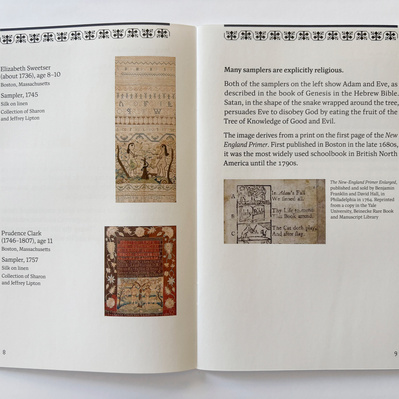 Elizabeth Sweetser
(about 1736), age 8-10
Boston, Massachusetts
Sampler, 1745
Silk on linen
Collection of Sharon
and Jeffrey Lipton
Prudence Clark
(1746–1807), age 11
Boston, Massachusetts
Sampler, 1757
Silk on linen
Collection of Sharon
and Jeffrey Lipton
8
Many samplers are explicitly religious.
Both of the samplers on the left show Adam and Eve, as
described in the book of Genesis in the Hebrew Bible.
Satan, in the shape of the snake wrapped around the tree,
persuades Eve to disobey God by eating the fruit of the
Tree of Knowledge of Good and Evil.
The image derives from a print on the first page of the New
England Primer. First published in Boston in the late 1680s,
it was the most widely used schoolbook in British North
America until the 1790s.
A
In Adam's Fall
We sinned all.
B
This Book attend.
C
The Cat doth play,
And after slay.
The New-England Primer Enlarged,
published and sold by Benjamin
Franklin and David Hall, in
Philadelphia in 1764. Reprinted
from a copy in the Yale
University, Beinecke Rare Book
and Manuscript Library
9